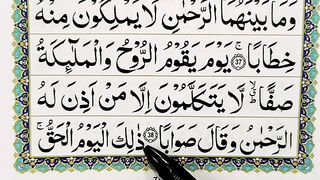 وَمَا بَيْنَهُمَا الرَّحْمٰنِ لَا يَمْلِكُوْنَ مِنْهُ
خِطَابًا ۚ ﴿37﴾ يَوْمَ يَقُوْمُ الرُّوْحُ وَالْمَلٰٓئِكَةُ
صَفًّا ۙۗ لَّا يَتَكَلَّمُوْنَ اِلَّا مَنْ اَذِنَ لَهُ
الرَّحْمٰنُ وَقَالَ صَوَابًا ﴿38﴾ ذٰلِكَ الْيَوْمُ الْحَقُّ ۚ